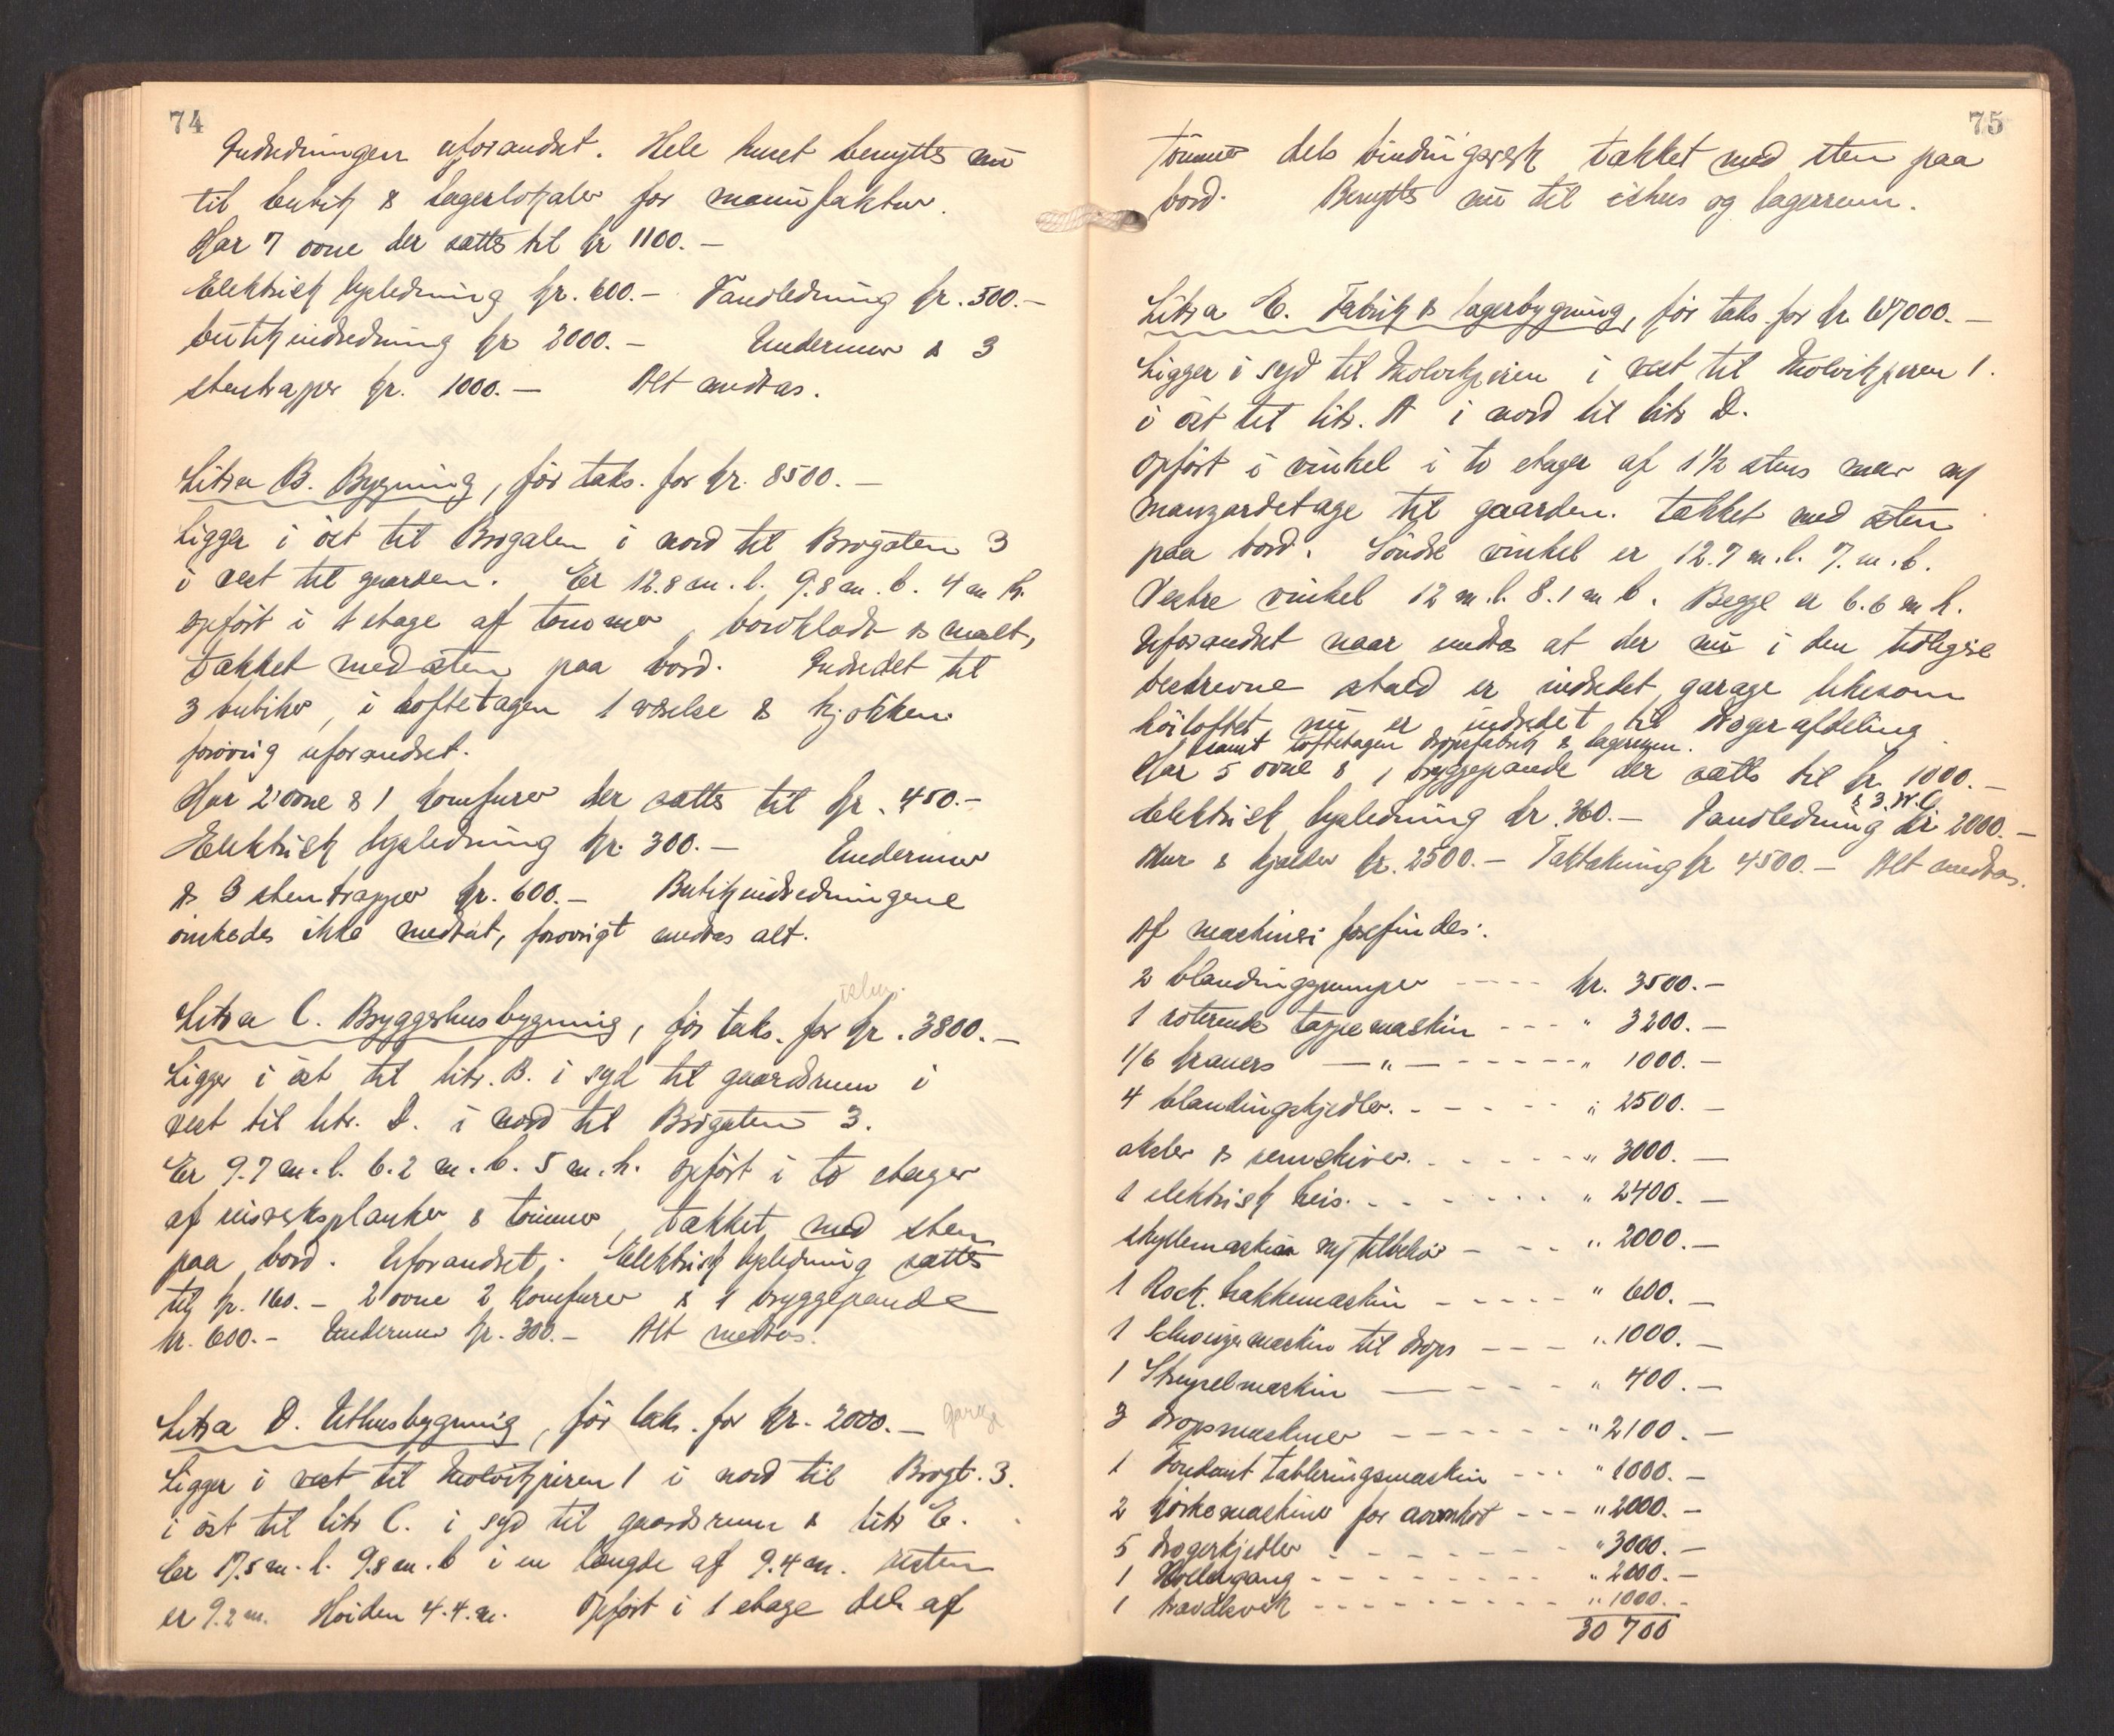 74
Indredningen uforandret. Hele huset benyttes nu
til butik & lagerlokaler for manufaktur.
Har 7 ovne der sættes til kr 1100.-
Elektrisk lysledning kr. 600.- Vandledning kr. 500.-
butikindredning kr 2000.- Undermur & 3
stentrapper kr. 1000.- Alt medtas.
Litra B. Bygning, før taks. for kr. 8500.-
Ligger i øst til Brogaten i nord til Brogaten 3
i vest til gaarden. Er 12.8 m. l. 9.8 m. b. 4 m h.
opført i 1 etage af tømmer, bordklædt & malt,
tækket med sten paa bord. Indredet til
3 butiker, i loftetagen 1 værelse & kjøkken
forøvrig uforandret.
Har 2 ovne & 1 komfurer der sættes til kr. 450.-
Elektrisk lysledning kr. 300.- Undermur
& 3 stentrapper kr. 600.- Butikindredningene
ønskedes ikke medtat, forøvrigt medtas alt.
ishus.
Litra C. Bryggerhusbygning, før taks. for kr. 3800.-
Ligger i øst til litr. B. i syd til gaardsrum i
vest til litr. D. i nord til Brogaten 3.
Er 9.7 m. l. 6.2 m. b. 5 m. h. opført i to etager
af planker & tømmer, tækket med sten
paa bord. Uforandret. Elektrisk lysledning sættes
til kr. 160.- 2 ovne 2 komfurer & 1 bryggepande
kr. 600.- Undermur kr. 300.- Alt medtas.
Litra D. Uthusbygning, før taks. for kr. 2000.- garage
Ligger i vest til Holvikpiren 1 i nord til Brogt. 3.
i øst til litr C. i syd til gaardsrum & litr E.
Er 17.5 m. l. 9.8 m. b i en længde af 9.4 m. resten
er 9.2 m. Høiden 4.4 m. Opført i 1 etage dels af
75
tømmer dels bindingsverk tækket med sten paa
bord. Benyttes nu til ishus og lagerrum.
Litra E. Fabrik & lagerbygning, før taks for kr 47000.-
Ligger i syd til Holvikpiren i vest til Holvikpiren 1.
i øst til litr. A i nord til litr D.
Opført i vinkel i to etager af 1½ stens mur m/
manzardetage til gaarden. Tækket med sten
paa bord. Søndre vinkel er 12.7 m. l. 7. m. b.
Vestre vinkel 12 m. l. 8.1 m b. Begge er 6.6 m h.
Uforandret naar undtas at der nu i den tidligere
beskrevne stald er indredet garage likesom
høiloftet nu er indredet til drogeriafdeling
samt loftetagen dropsfabrik & lagerrum.
Har 5 ovne & 1 bryggepande der sættes til kr. 1000.-
& 3 W.C.
Elektrisk lysledning kr. 360.- Vandledning kr 2000.-
Mur & kjælder kr. 2500.- Taktækning kr 4500.- Alt medtas.
Af maskineri forefindes:
2 blandingspumper ----- kr. 3500.-
1 roterende tappemaskin --- " 3200.-
1/6 kraners -"------- " 1000.-
4 blandingskjedler. ----- " 2500.-
aksler & remskiver. ----- " 3000.-
1 elektrisk heis. ------ " 2400.-
skyllemaskin m/ tilbehør --- " 2000.-
1 Rock. hakkemaskin ----- " 600.-
1 maskin til drops --- " 1000.-
1 Stempelmaskin ---- " 400.-
3 dropsmaskiner ------ " 2100.-
1 Fondant tableringsmaskin --- " 1000.-
2 maskiner for --- " 2000.-
5 drogerkjedler ------ " 3000.-
1 Kollergang -------- " 2000.-
1 --------- " 1000.-
30 700